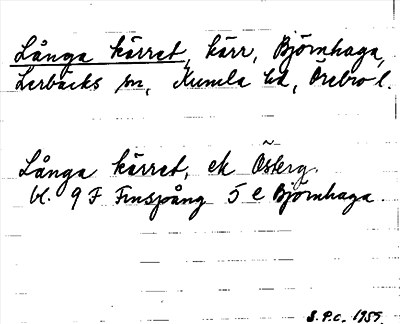 Långa kärret, kärr, Björnhaga,
Lerbäcks sn, Kumla hd, Örebro l.
Långa kärret, ek Österg.
bl. 9 F Finspång 5 e Björnhaga.
S.P.c. 1959.